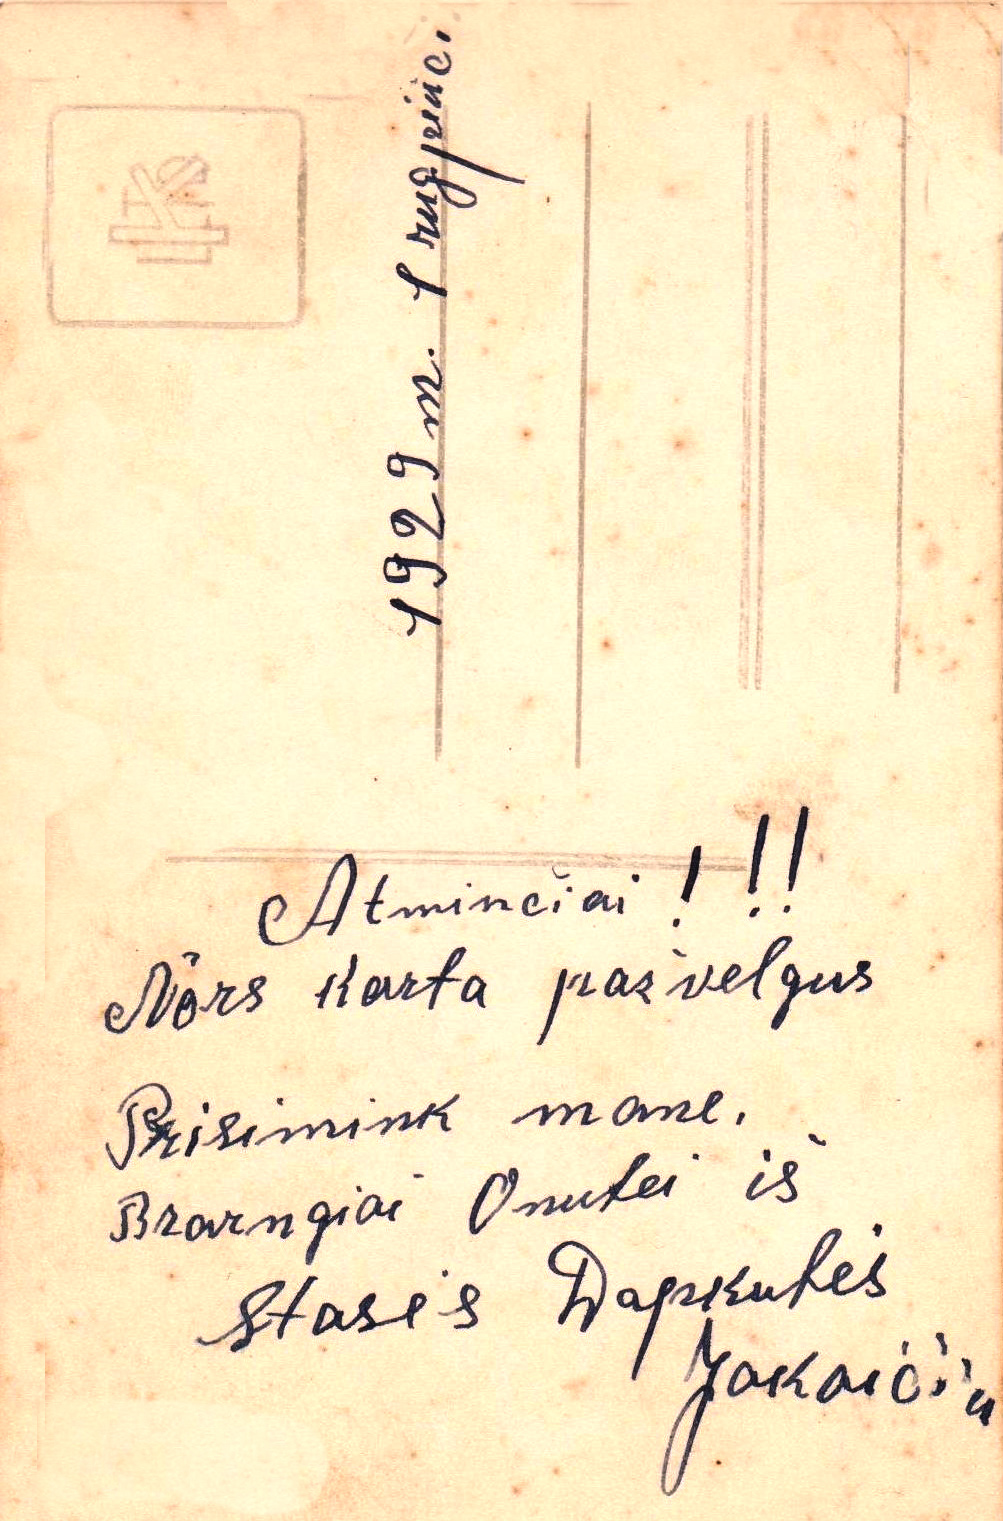 1929 m. 1 rugpiuč.
Atminčiai ! !!
Nors karta pažvelgus
Prisimink mane.
Brangiai Onutei iš
Stasės Dapkutės
Jakaičiu